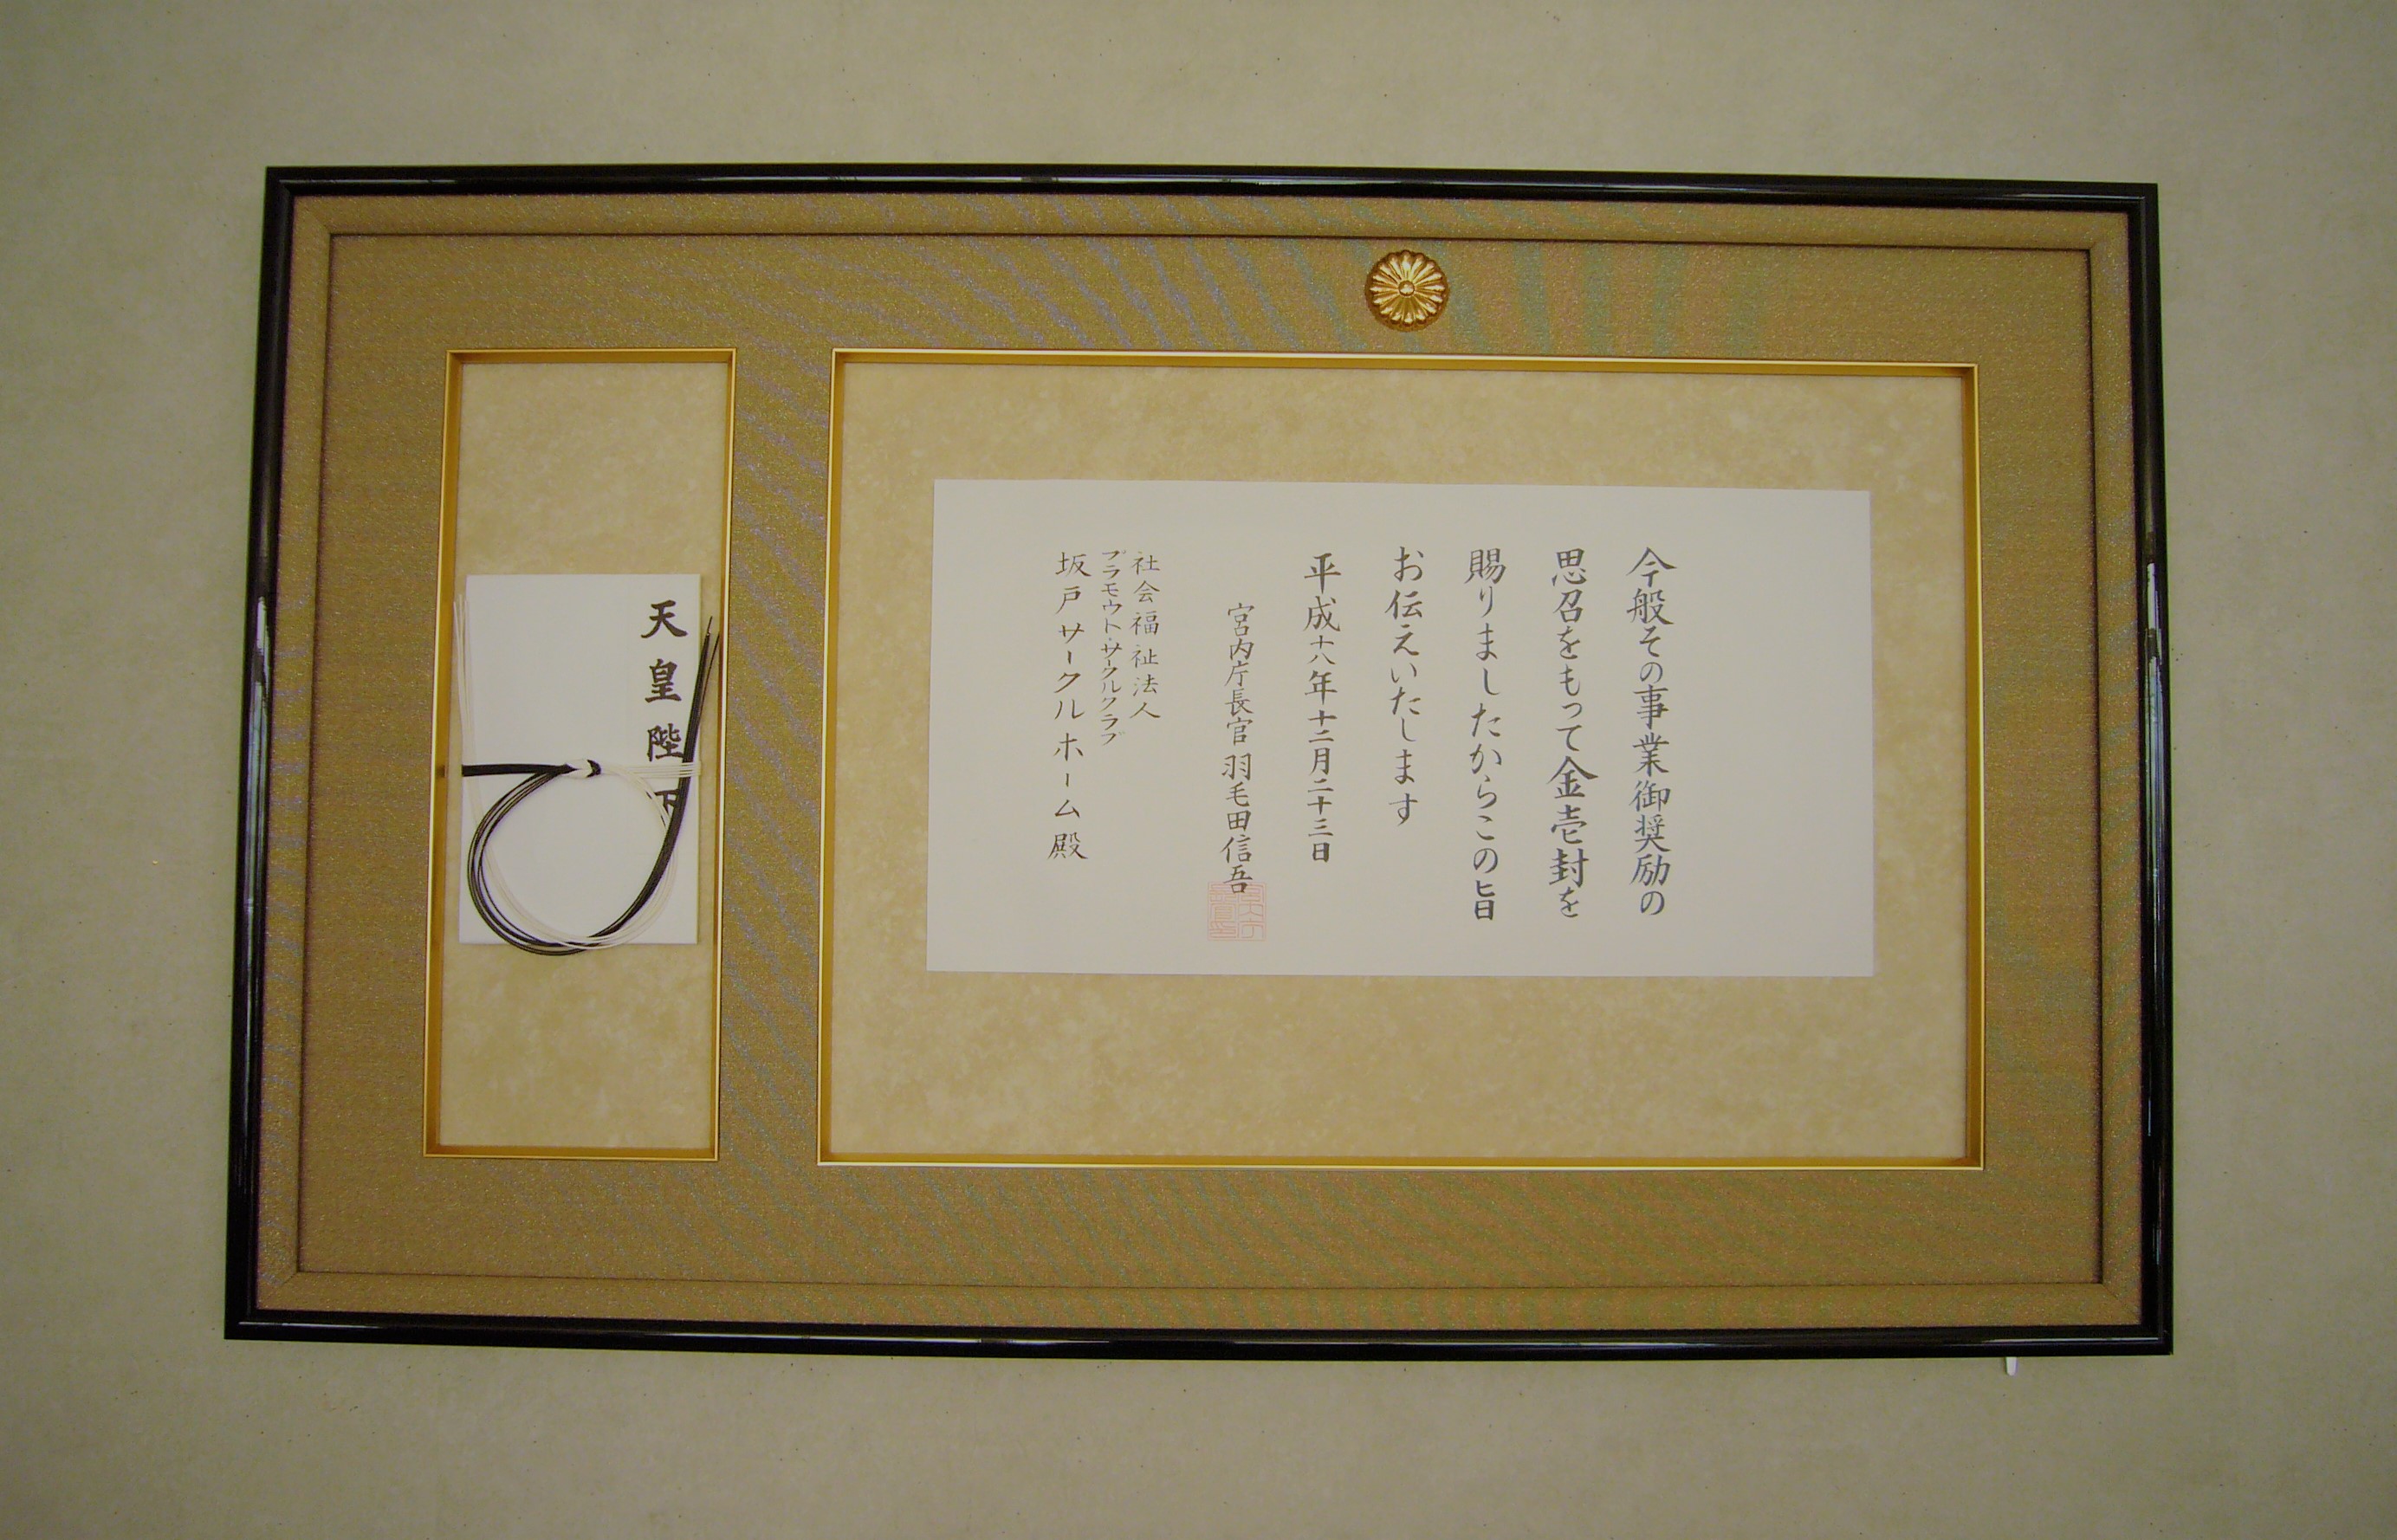 今般その事業御奨励の
思召をもって金壱封を
賜りましたからこの旨
お伝えいたします
平成十八年十二月二十三日
宮内庁長官 羽毛田信吾
社会福祉法人
プラモウト・サークルクラブ
坂戸サークルホーム殿
天皇陛下